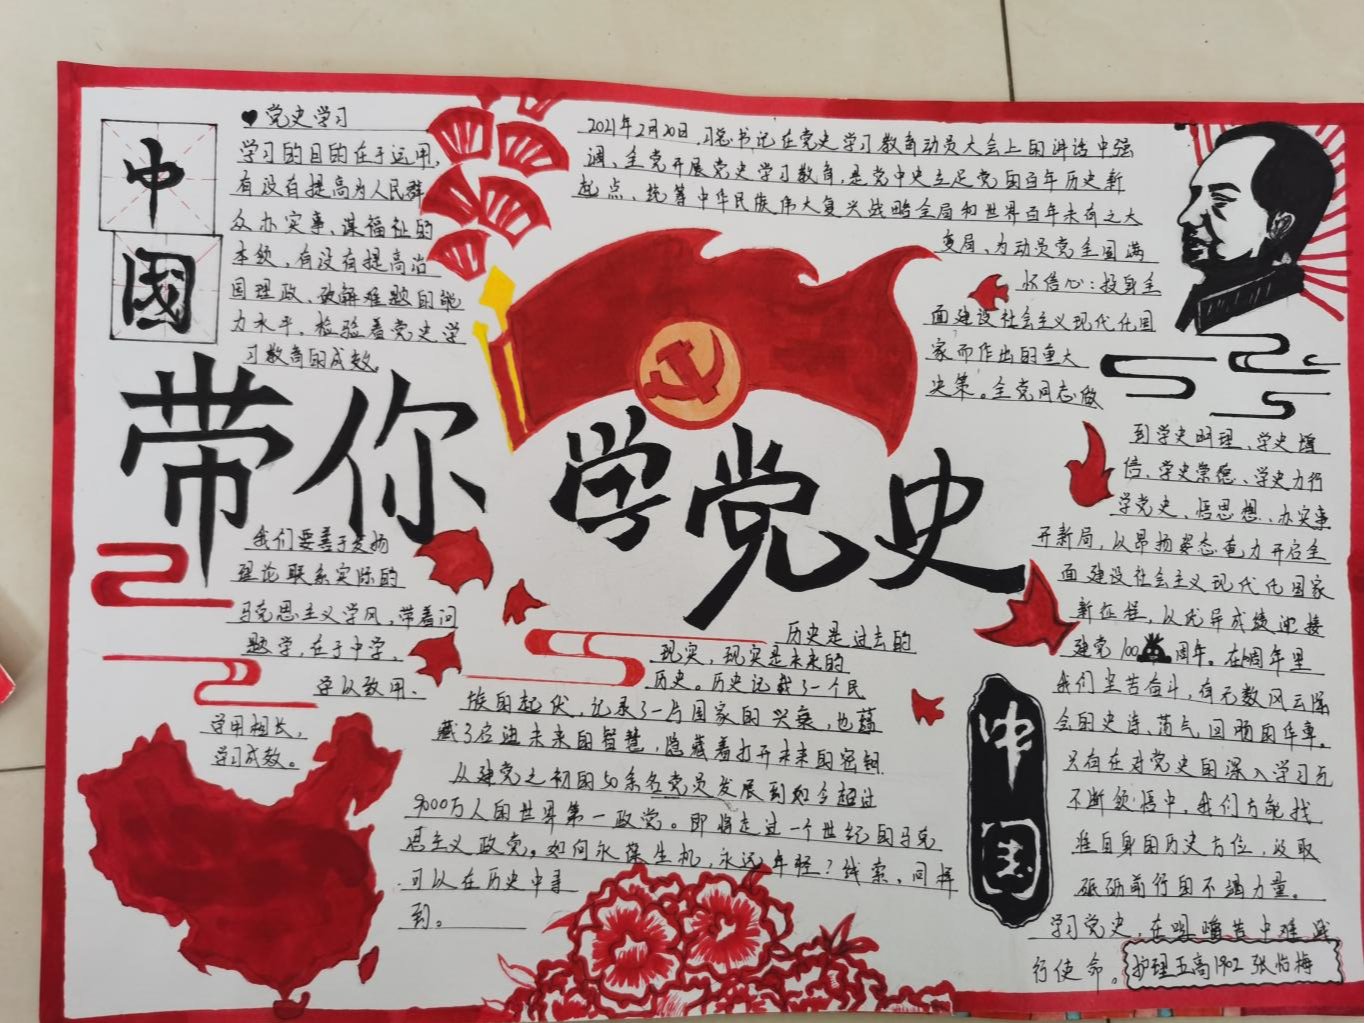 中
國
♥党史学习
学习的目的在于运用,
有没有提高为人民群
众办实事、谋福祉的
本领,有没有提高治
国理政、破解难题的能
力水平,检验着党史学
习教育的成效。
2021年2月20日,习总书记在党史学习教育动员大会上的讲话中强
调、全党开展党史学习教育,是党中央立足党的百年历史新
起点、统筹中华民族伟大复兴战略全局和世界百年未有之大
变局、为动员党全国满
怀信心:投身全
面建设社会主义现代化国
家而作出的重大
决策。全党同志做
到学史明理、学史增
信、学史崇德、学史力行
学党史、悟思想、办实事
开新局,以昂扬姿态奋力开启全
面建设社会主义现代化国家
新征程,以优异成绩迎接
建党100周年。在周年里
我们坚苦奋斗,有无数风云际
会的史诗、荡气回肠的华章。
只有在对党史的深入学习与
不断领悟中,我们方能找
准自身的历史方位,汲取
砥砺前行的不竭力量。
学习党史,在中
行使命。
带你学党史
我们要善于发扬
理论联系实际的
马克思主义学风,带着问
题学,在于中学,
学以致用、
学用相长,
学习成效。
历史是过去的
现实,现实是未来的
历史。历史记载了一个民
族的起伏,记录了一与国家的兴衰,也蕴
藏了启迪未来的智慧,隐藏着打开未来的密钥.
从建党之初的50余名党员发展到如今超过
9000万人的世界第一政党。即将走过一个世纪的马克
思主义政党。如何永葆生机,永远年轻?线索,同样
可以在历史中寻
到。
中
国
护理五高1902 张怡梅